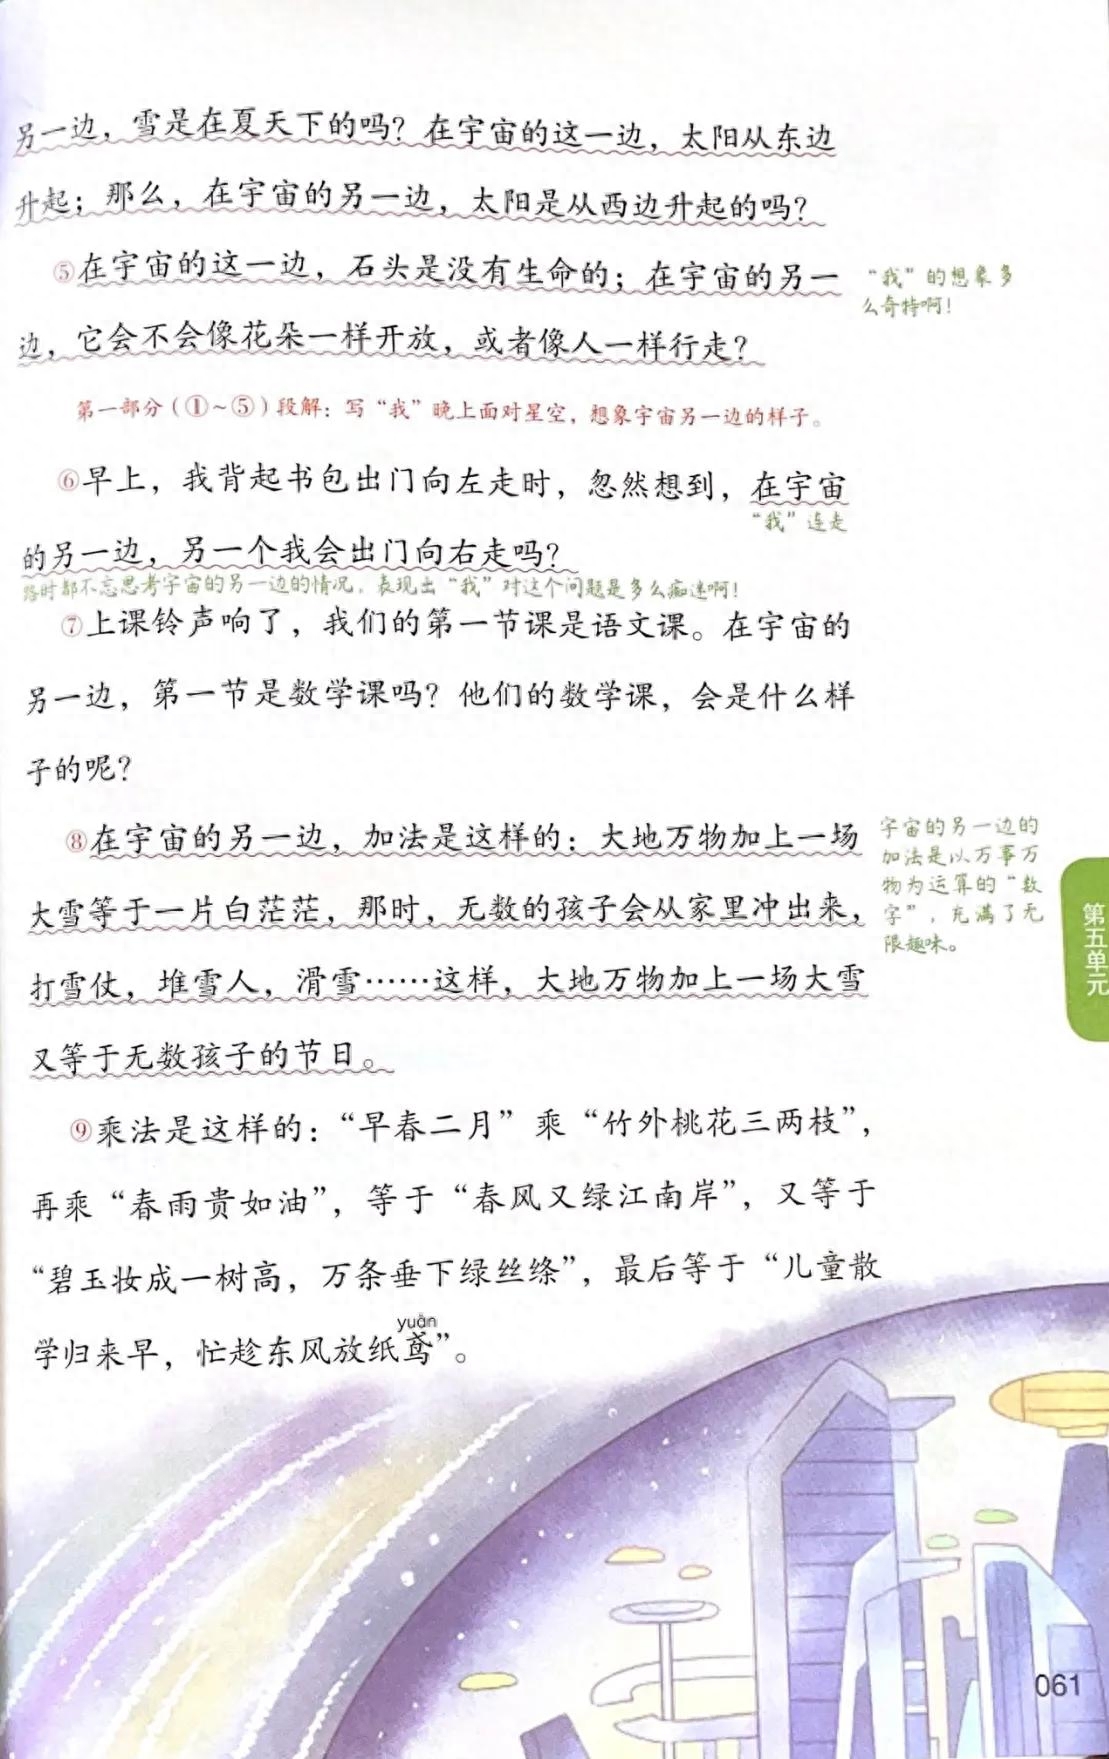 另一边，雪是在夏天下的吗？在宇宙的这一边，太阳从东边
升起；那么，在宇宙的另一边，太阳是从西边升起的吗？
⑤在宇宙的这一边，石头是没有生命的；在宇宙的另一
边，它会不会像花朵一样开放，或者像人一样行走？
“我”的想象多
么奇特啊！
第一部分（①～⑤）段解：写“我”晚上面对星空，想象宇宙另一边的样子。
⑥早上，我背起书包出门向左走时，忽然想到，在宇宙
“我”连走
的另一边，另一个我会出门向右走吗？
路时都不忘思考宇宙的另一边的情况，表现出“我”对这个问题是多么痴迷啊！
⑦上课铃声响了，我们的第一节课是语文课。在宇宙的
另一边，第一节是数学课吗？他们的数学课，会是什么样
子的呢？
⑧在宇宙的另一边，加法是这样的：大地万物加上一场
大雪等于一片白茫茫，那时，无数的孩子会从家里冲出来，
打雪仗，堆雪人，滑雪……这样，大地万物加上一场大雪
又等于无数孩子的节日。
宇宙的另一边的
加法是以万事万
物为运算的“数
字”，充满了无
限趣味。
第五单元
⑨乘法是这样的：“早春二月”乘“竹外桃花三两枝”，
再乘“春雨贵如油”，等于“春风又绿江南岸”，又等于
“碧玉妆成一树高，万条垂下绿丝绦”，最后等于“儿童散
yuān
学归来早，忙趁东风放纸鸢”。
061